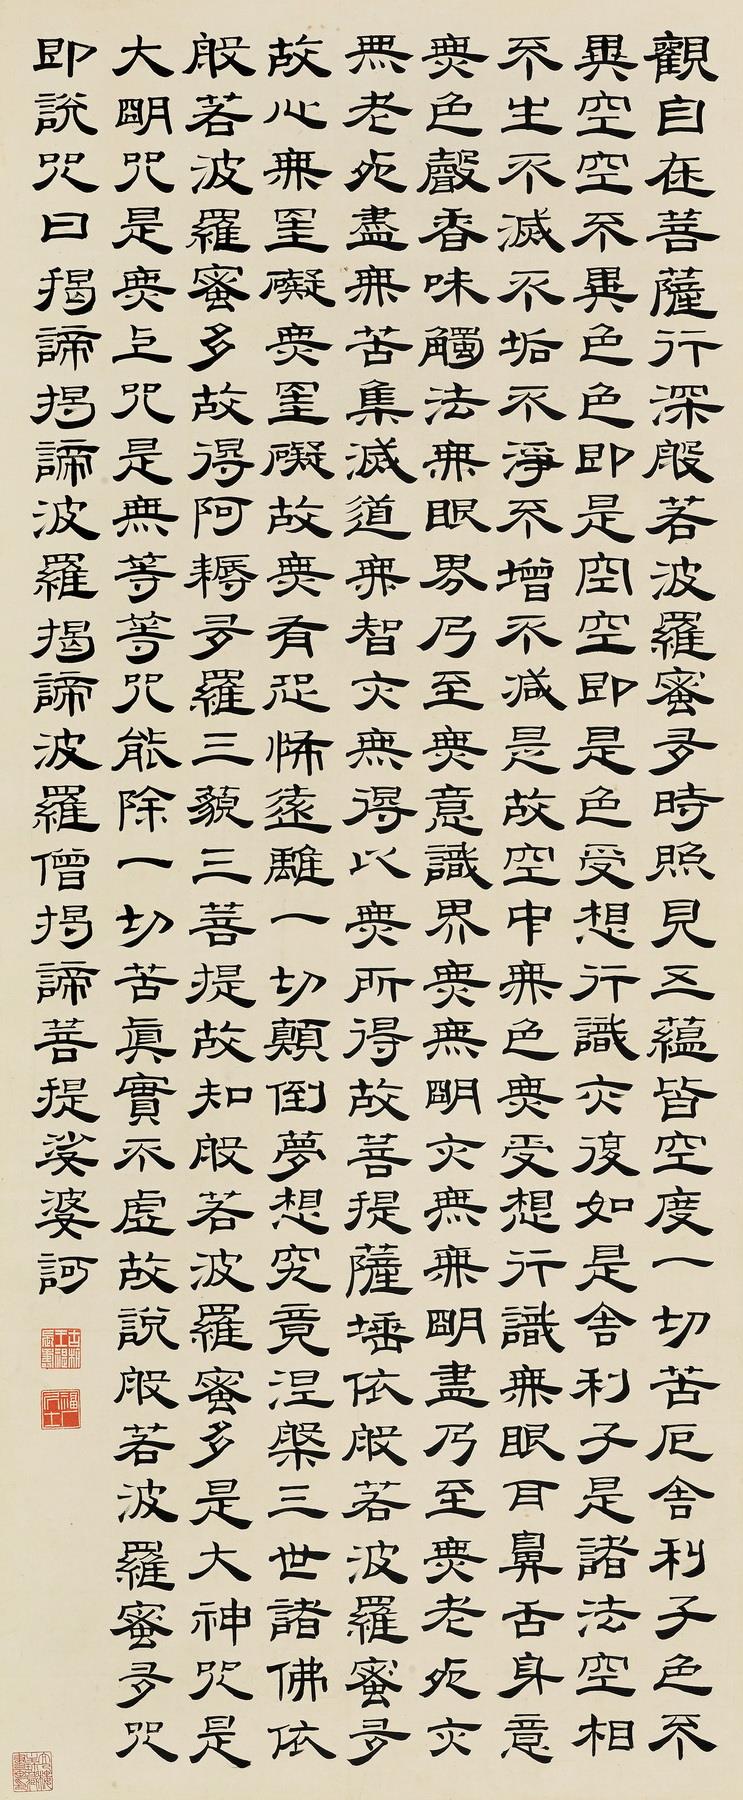 觀自在菩薩行深般若波羅蜜多時照見五蘊皆空度一切苦厄舍利子色不
異空空不異色色即是空空即是色受想行識亦復如是舍利子是諸法空相
不生不滅不垢不淨不增不減是故空中無色無受想行識無眼耳鼻舌身意
無色聲香味觸法無眼界乃至無意識界無無明亦無無明盡乃至無老死亦
無老死盡無苦集滅道無智亦無得以無所得故菩提薩埵依般若波羅蜜多
故心無罣礙無罣礙故無有恐怖遠離一切顛倒夢想究竟涅槃三世諸佛依
般若波羅蜜多故得阿耨多羅三藐三菩提故知般若波羅蜜多是大神咒是
大明咒是無上咒是無等等咒能除一切苦眞實不虛故說般若波羅蜜多咒
即說咒曰揭諦揭諦波羅揭諦波羅僧揭諦菩提娑婆訶